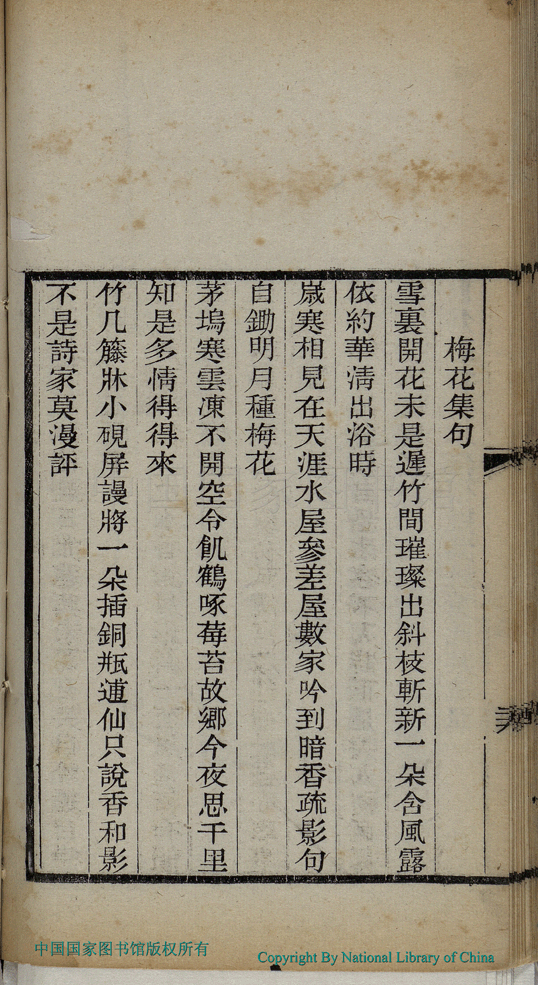 梅花集句
雪裏開花未是遲竹間璀璨出斜枝斬新一朵含風露
依約華清出浴時
歲寒相見在天涯水屋參差屋數家吟到暗香疏影句
自鋤明月種梅花
茅塢寒雲凍不開空令飢鶴啄莓苔故鄉今夜思千里
知是多情得得來
竹几籐牀小硯屏謾將一朵插銅瓶逋仙只說香和影
不是詩家莫漫評
中国国家图书馆版权所有
Copyright By National Library of China